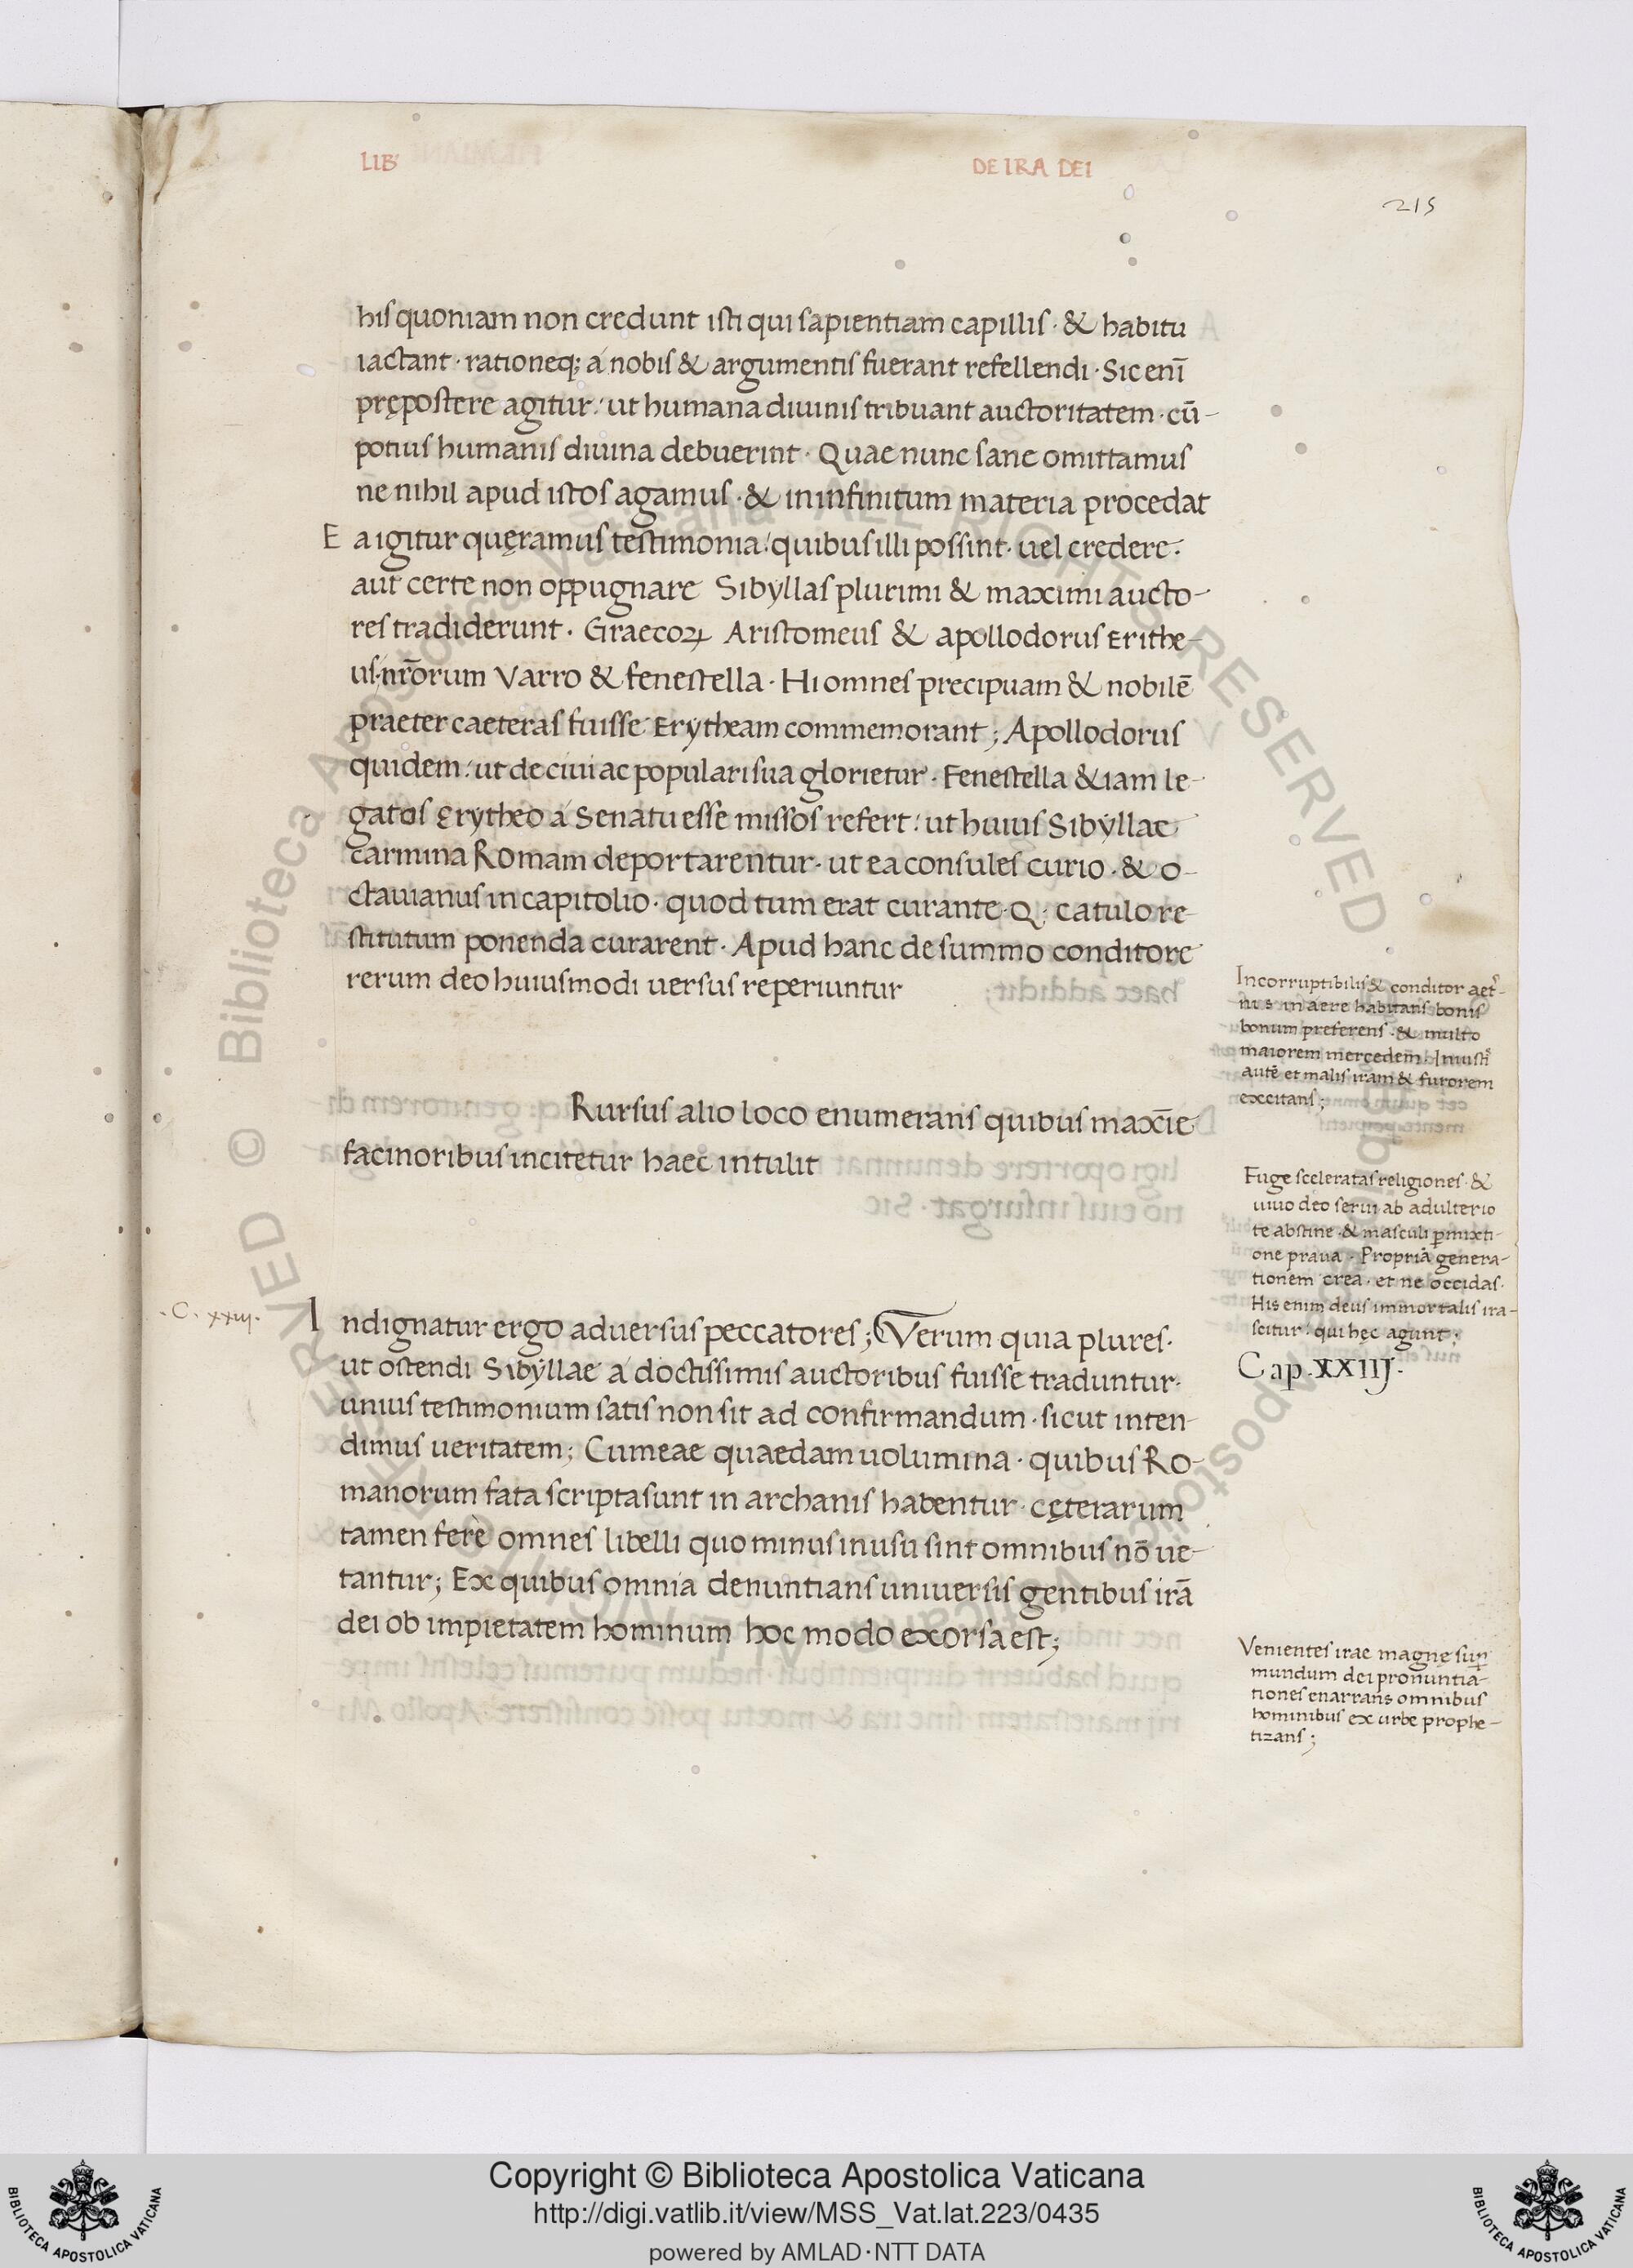 LIB' DE IRA DEI
215
his quoniam non credunt isti qui sapientiam capillis · & habitu
iactant · rationeq; á nobis & argumentis fuerant refellendi · Sic enī
prępostere agitur: ut humana diuinis tribuant auctoritatem · cū-
potius humanis diuina debuerint · Quae nunc sane omittamus
ne nihil apud istos agamus · & in infinitum materia procedat
E a igitur quęramus testimonia: quibus illi possint · uel credere:
aut certe non oppugnare Sibyllas plurimi & maximi aucto-
res tradiderunt · Graecoꝝ Aristomeus & apollodorus Erithe-
us · nr̄orum Varro & fenestella · Hi omnes precipuam & nobilē
praeter caeteras fuisse Erytheam commemorant; Apollodorus
quidem: ut de ciui ac populari sua glorietur · Fenestella & iam le-
gatos Erytheo á Senatu esse missos refert: ut huius Sibyllae
carmina Romam deportarentur · ut ea consules curio · & o-
ctauianus in capitolio · quod tum erat curante · Q · catulo re-
stitutum ponenda curarent · Apud hanc de summo conditore
rerum deo huiusmodi uersus reperiuntur
Incorruptibilis & conditor aet̉-
nus in aere habitans bonis
bonum preferens · & multo
maiorem mercedem · Iniustis
autē et malis iram & furorem
excitans;
Rursus alio loco enumerans quibus maxīe
facinoribus incitetur haec intulit
Fuge sceleratas religiones · &
uiuo deo serui ab adulterio
te abstine · & masculi ꝑmixti-
one praua · Propriā genera-
tionem crea · et ne occidas ·
His enim deus immortalis ira-
scitur: qui hęc agunt;
Cap · XXIIJ ·
· C · xxiij ·
I ndignatur ergo aduersus peccatores; Verum quia plures ·
ut ostendi Sibyllae á doctissimis auctoribus fuisse traduntur ·
unius testimonium satis non sit ad confirmandum · sicut inten-
dimus ueritatem; Cumeae quaedam uolumina · quibus Ro-
manorum fata scripta sunt in archanis habentur · cęterarum
tamen ferè omnes libelli quo minus in usu sint omnibus nō ue-
tantur; Ex quibus omnia denuntians uniuersis gentibus irā
dei ob impietatem hominum hoc modo exorsa est;
Venientes irae magnę suꝑ
mundum dei pronuntia-
tiones enarrans omnibus
hominibus ex urbe prophe-
tizans;
Copyright © Biblioteca Apostolica Vaticana
http://digi.vatlib.it/view/MSS_Vat.lat.223/0435
powered by AMLAD·NTT DATA
BIBLIOTECA APOSTOLICA VATICANA
BIBLIOTECA APOSTOLICA VATICANA